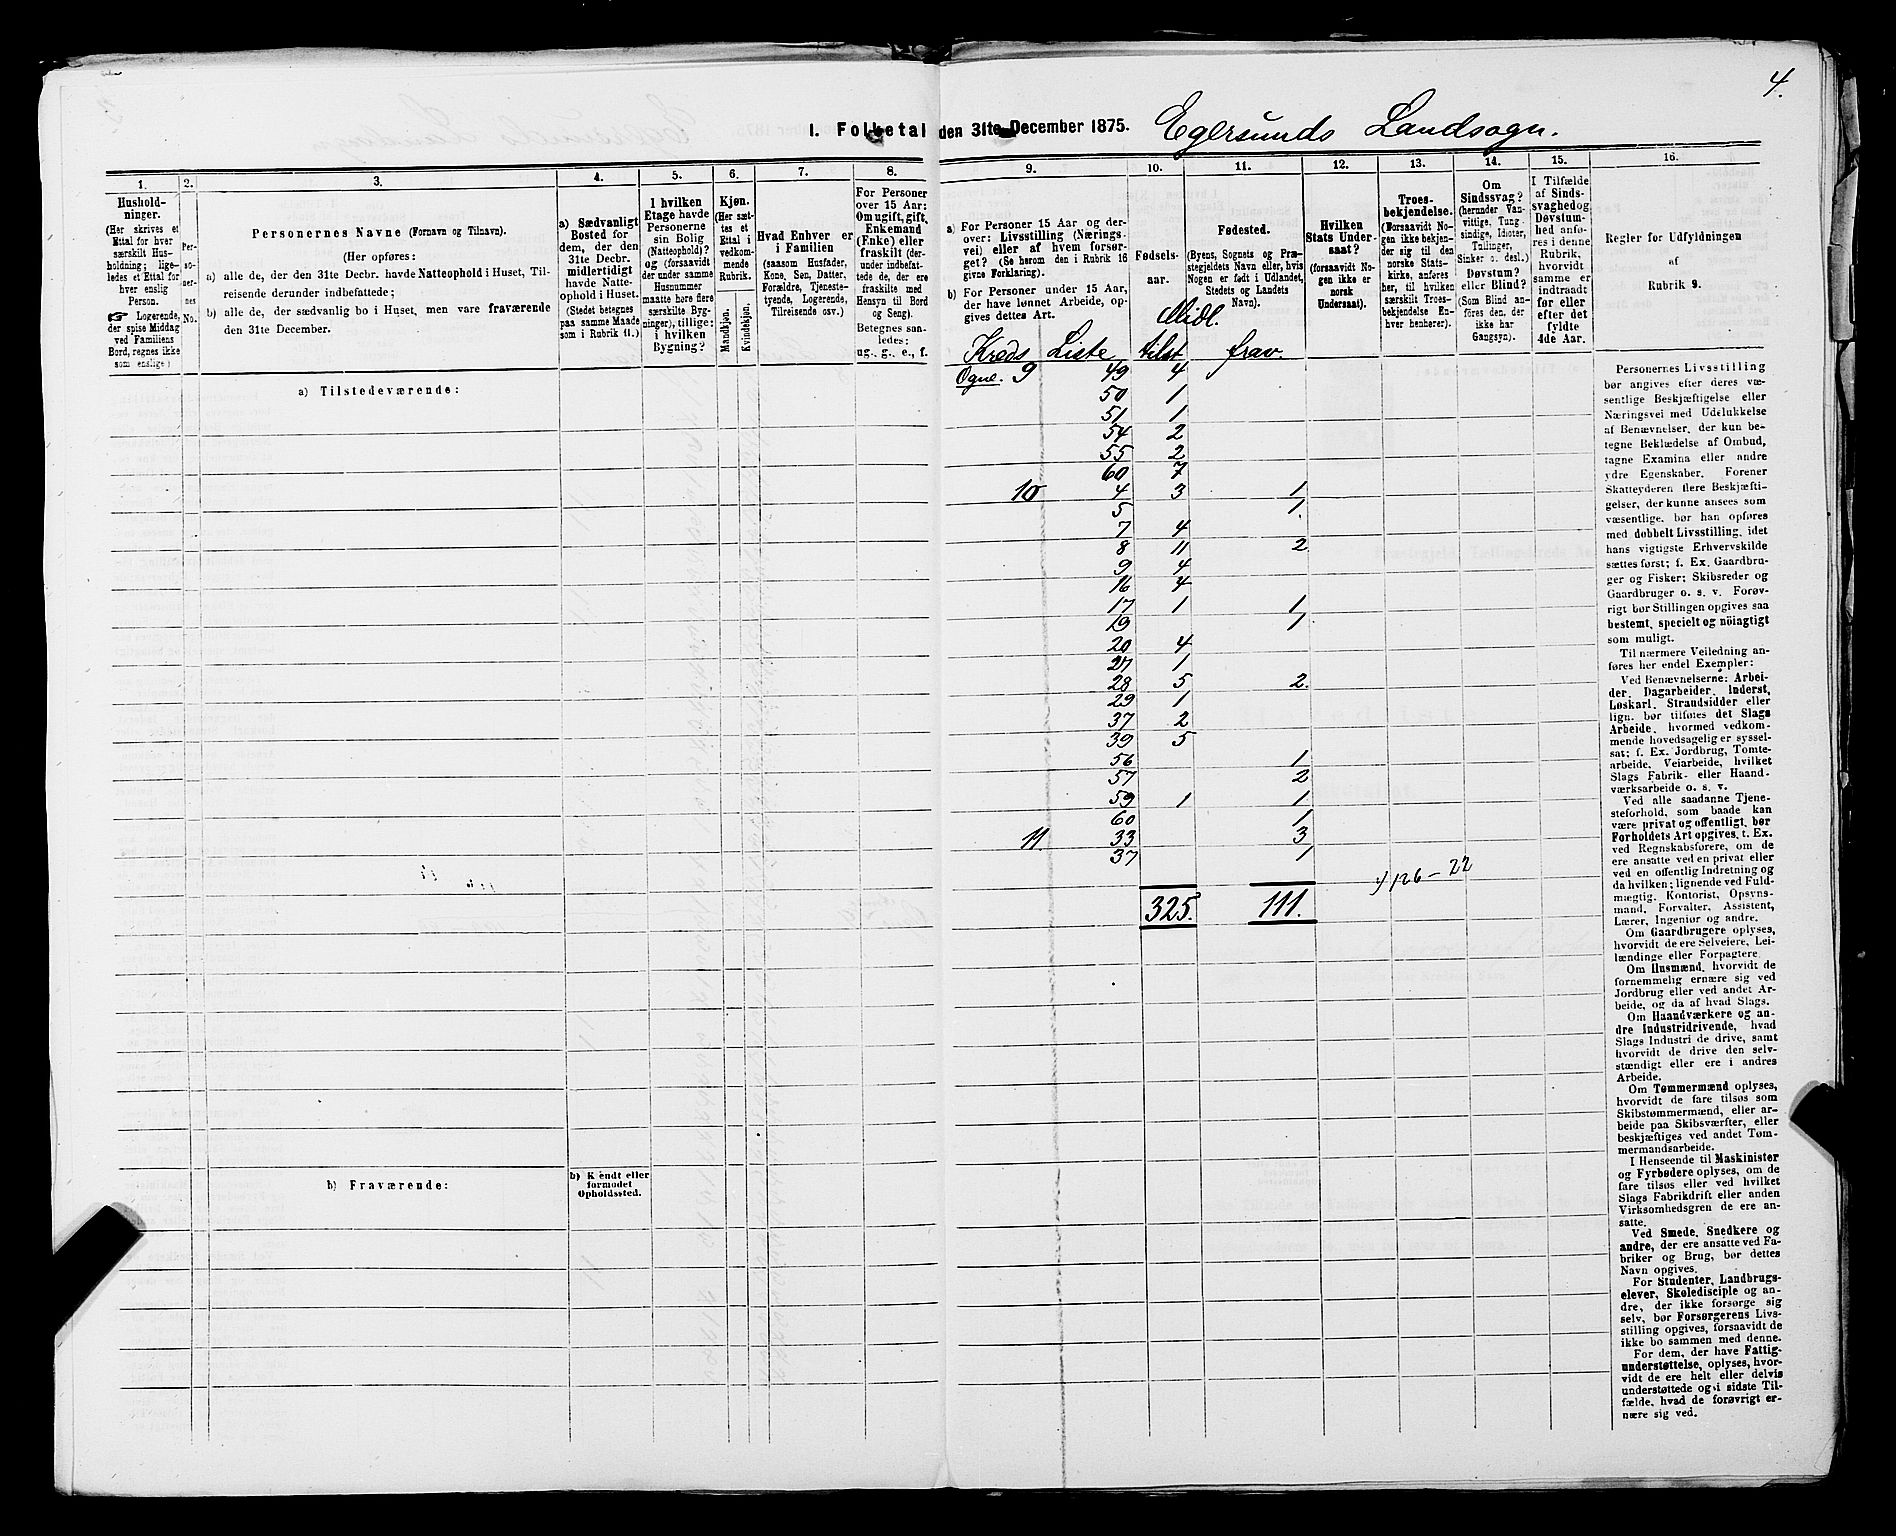 4.
1. Folketal den 31te December 1875. Egersunds Landsogn.
1.
Hushold-
ninger.
(Her skrives et
Ettal for hver
særskilt Hus-
holdning; lige-
ledes et Ettal for
hver enslig
Person.
☞ Logerende,
der spise Middag
ved Familiens
Bord, regnes ikke
som enslige)
2.
Per-
so-
ner-
nes
No.
3.
Personernes Navne (Fornavn og Tilnavn).
(Her opføres:
a) alle de, der den 31te Decbr. havde Natteophold i Huset, Til-
reisende derunder indbefattede;
b) alle de, der sædvanlig bo i Huset, men vare fraværende
den 31te December.
4.
a) Sædvanligt
Bosted for
dem, der den
31te Decbr.
midlertidigt
havde Natte-
ophold i Huset.
(Stedet betegnes
paa samme Maade
som i Rubrik 11.)
5.
I hvilken
Etage havde
Personerne
sin Bolig
(Natteophold)?
og (forsaavidt
der under samme
Husnummer
maatte høre flere
særskilte Byg-
ninger), tillige:
i hvilken
Bygning?
6.
Kjøn.
(Her sæt-
tes et
Ettal i
vedkom-
mende
Rubrik.
Mandkjøn.
Kvindekjøn.
7.
Hvad Enhver er
i Familien
(saasom Husfader,
Kone, Søn, Datter,
Forældre, Tjeneste-
tyende, Logerende,
Tilreisende osv.)
8.
For Personer
over 15 Aar:
Om ugift, gift,
Enkemand
(Enke) eller
fraskilt (der-
under indbefat-
tede de, der ere
fraskilte med
Hensyn til Bord
og Seng).
Betegnes saa-
ledes:
ug., g., e., f.
9.
a) For Personer 15 Aar og der-
over: Livsstilling (Nærings-
vei) eller af hvem forsør-
get? (Se herom den i Rubrik 16
givne Forklaring).
b) For Personer under 15 Aar,
der have lønnet Arbeide, op-
gives dettes Art.
10.
Fødsels-
aar.
11.
Fødested.
(Byens, Sognets og Præ-
stegjeldets Navn eller, hvis
Nogen er født i Udlandet,
Stedets og Landets
Navn).
12.
Hvilken
Stats Under-
saat?
(forsaavidt No-
gen ikke er
norsk
Undersaat).
13.
Troes-
bekjendelse.
(Forsaavidt No-
gen ikke bekjen-
der sig til den
norske Stats-
kirke, anføres
her, til hvilken
særskilt Troes-
bekjendelse En-
hver henhører).
14.
Om
Sindssvag?
(herunder Van-
vittige, Tung-
sindige, Idioter,
Tullinger,
Sinker o. desl.)
Døvstum?
eller Blind?
(Som Blind an-
føres den, der
ikke har
Gangsyn).
15.
I Tilfælde
af Sinds-
svaghed og
Døvstum-
hed anfø-
res i denne
Rubrik,
hvorvidt
samme er
indtraadt
før eller
efter det
fyldte
4de Aar.
16.
Regler for Udfyldningen
af
Rubrik 9.
Midl.
Kreds Liste tilst frav.
Ogne. 9 49 4
50 1
51 1
54 2
55 2
60 7
10 4 3 1
5 1
7 4
8 11 2
9 4
16 4
17 1 1
19 1
20 4
27 1
28 5 2
29 1
37 2
39 5
56 1
57 2
59 1 1
60 1
11. 33 3
37 1
126 – 22
325. 111.
a) Tilstedeværende:
b) Fraværende:
b) Kjendt eller
formodet
Opholdssted.
Personernes Livsstilling
bør angives efter deres væ-
sentlige Beskjæftigelse eller
Næringsvei med Udelukkelse
af Benævnelser, der kun be-
tegne Beklædelse af Ombud,
tagne Examina eller andre
ydre Egenskaber. Forener
Skatteyderen flere Beskjæfti-
gelser, der kunne ansees som
væsentlige, bør han opføres
med dobbelt Livsstilling, idet
hans vigtigste Erhvervskilde
sættes først; f. Ex. Gaardbru-
ger og Fisker; Skibsreder og
Gaardbruger o. s. v. Forøv-
rigt bør Stillingen opgives saa
bestemt, specielt og nöiagtigt
som muligt.
Til nærmere Veiledning an-
føres her endel Exempler:
Ved Benævnelserne: Arbei-
der, Dagarbeider, Inderst,
Løskarl, Strandsidder eller
lign. bør tilføres det Slags
Arbeide, hvormed vedkom-
mende hovedsagelig er syssel-
sat; f. Ex. Jordbrug, Tomte-
arbeide, Veiarbeide, hvilket
Slags Fabrik- eller Haand-
værksarbeide o. s. v.
Ved alle saadanne Tjene-
steforhold, som baade kan
være privat og offentligt, bør
Forholdets Art opgives, t. Ex.
ved Regnskabsførere, om de
ere ansatte ved en privat eller
ved en offentlig Indretning og
da hvilken; lignende ved Fuld-
mægtig, Kontorist, Opsyns-
mand, Forvalter, Assistent,
Lærer, Ingeniør og andre.
Om Gaardbrugere oplyses,
hvorvidt de ere Selveiere, Lei-
lændinge eller Forpagtere.
Om Husmænd, hvorvidt de
fornemmelig ernære sig ved
Jordbrug eller ved andet Ar-
beide, og da af hvad Slags.
Om Haandværkere og an-
dre Industridrivende, hvad
Slags Industri de drive, samt
hvorvidt de drive den selv-
stændigt eller ere i andres
Arbeide.
Om Tømmermænd oplyses,
hvorvidt de fare tilsøs som
Skibstømmermænd, eller ar-
beide paa Skibsværfter, eller
beskjæftiges ved andet Tøm-
mermandsarbeide.
I Henseende til Maskinister
og Fyrbødere oplyses, om de
fare tilsøs eller ved hvilket
Slags Fabrikdrift eller anden
Virksomhedsgren de ere an-
satte.
Ved Smede, Snedkere og
andre, der ere ansatte ved Fa-
briker og Brug, bør dettes
Navn opgives.
For Studenter, Landbrugs-
elever, Skoledisciple og an-
dre, der ikke forsørge sig
selv, bør Forsørgerens Livs-
stilling opgives, forsaavidt de
ikke bo sammen med denne.
For dem, der have Fattig-
understøttelse, oplyses, hvor-
vidt de ere helt eller delvis
understøttede og i sidste Til-
fælde, hvad de forøvrigt er-
nære sig ved.